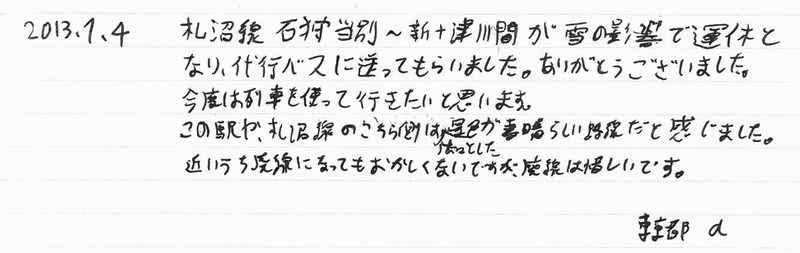 2013.1.4
札沼線 石狩当別〜新十津川間が雪の影響で運休と
なり、代行バスに送ってもらいました。ありがとうございました。
今度は列車を使って行きたいと思います。
この駅や、札沼線のこちら側は、景色が素晴らしい路線だと感じました。
近いうち廃線になってもおかしくないですが、廃線は惜しいです。